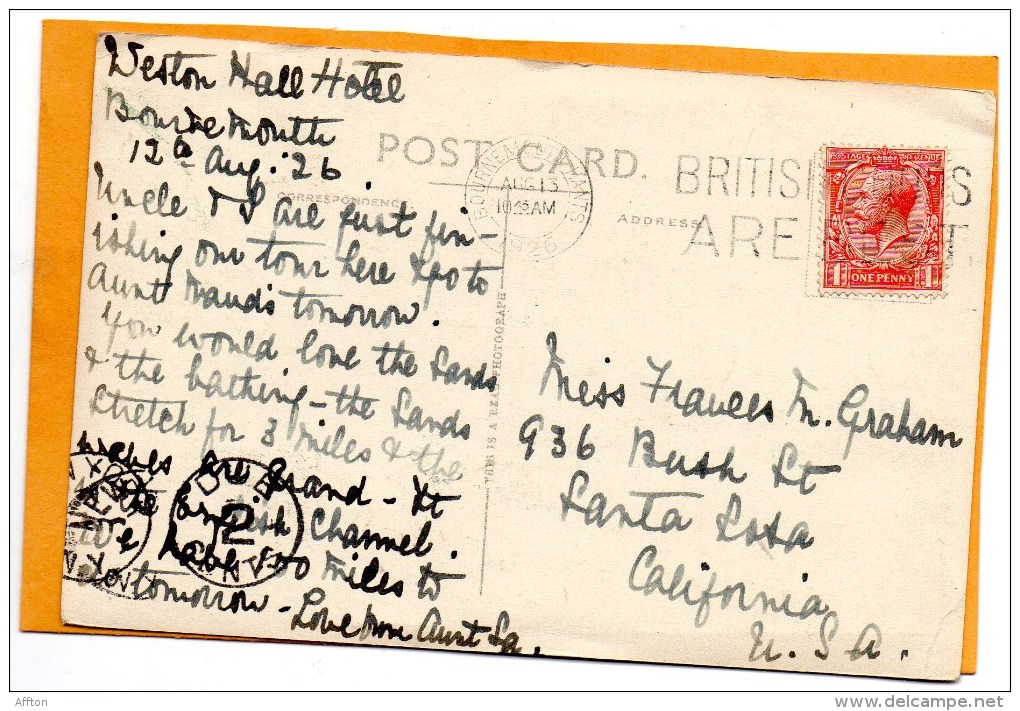 Weston Hall Hotel
Bournemouth
12th Aug. '26.
Uncle & I are just fin-
ishing our tour here & go to
Aunt Maud's tomorrow.
You would love the Sands
& the bathing - the Sands
stretch for 3 miles & the
are grand - It
the English Channel.
We have 50 miles to
go tomorrow -
Love from Aunt Ia.
POST CARD.
CORRESPONDENCE.
ADDRESS
BOURNEMOUTH HANTS
AUG 13
10 45 AM
1926
BRITISH GOODS
ARE BEST
POSTAGE REVENUE
1 ONE PENNY 1
THIS IS A REAL PHOTOGRAPH
Miss Frances M. Graham
936 Bush St
Santa Rosa
California
U. S. A.
DUE
2
CENTS
Affton
www.delcampe.net